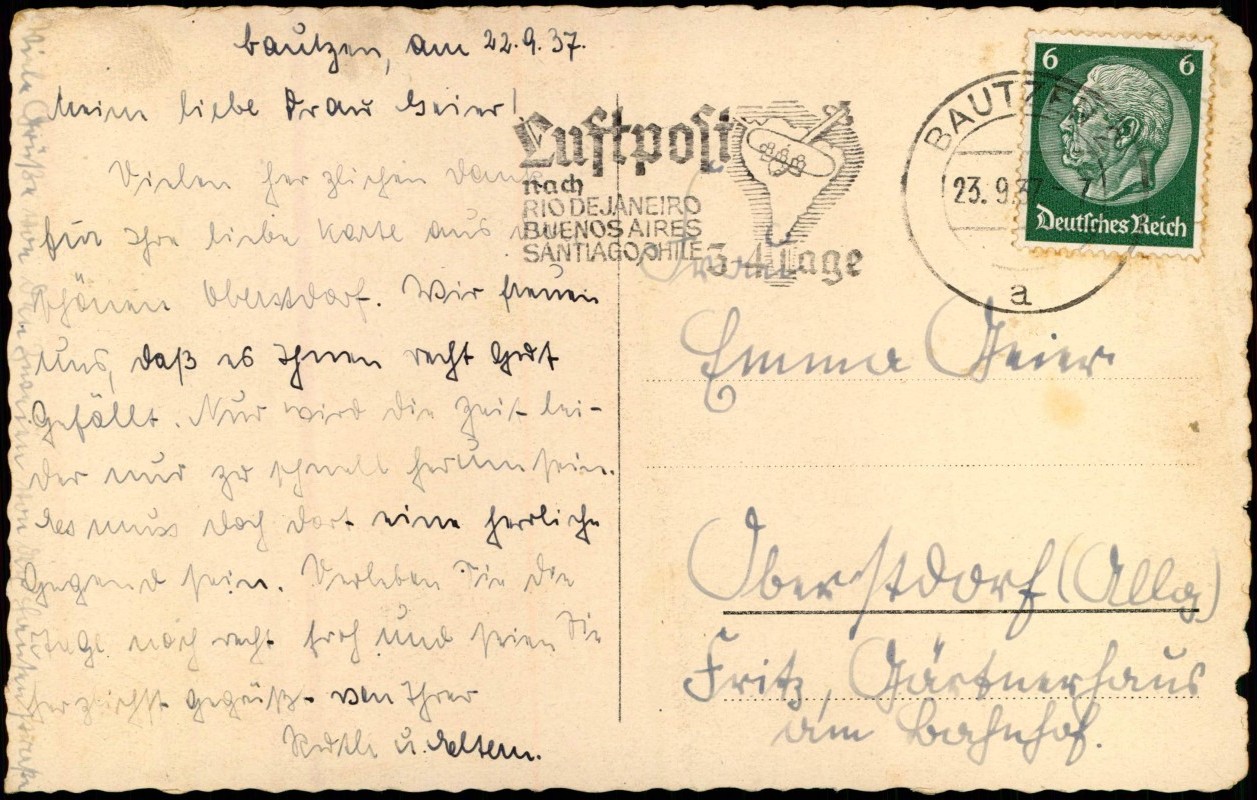 Bautzen, am 22.9.37.
Meine liebe Frau Geier!
Vielen herzlichen Dank
für Ihre liebe Karte aus
schönen Oberstdorf. Wir freuen
uns, daß es Ihnen recht gut
gefällt. Nur wird die Zeit lei-
der nur zu schnell herum sein.
Es muss doch dort eine herrliche
Gegend sein. Verleben Sie die
Tage noch recht froh und seien Sie
herzlichst gegrüßt von Ihrer
u. Eltern.
Viele Grüße von
Luftpost
nach
RIO DE JANEIRO
BUENOS AIRES
SANTIAGO/CHILE 3-4 Tage
BAUTZEN
23. 9.37
a
6 6
Deutsches Reich
Frau
Emma Geier
Oberstdorf (Allg)
Fritz, Gärtnerhaus
am Bahnhof.